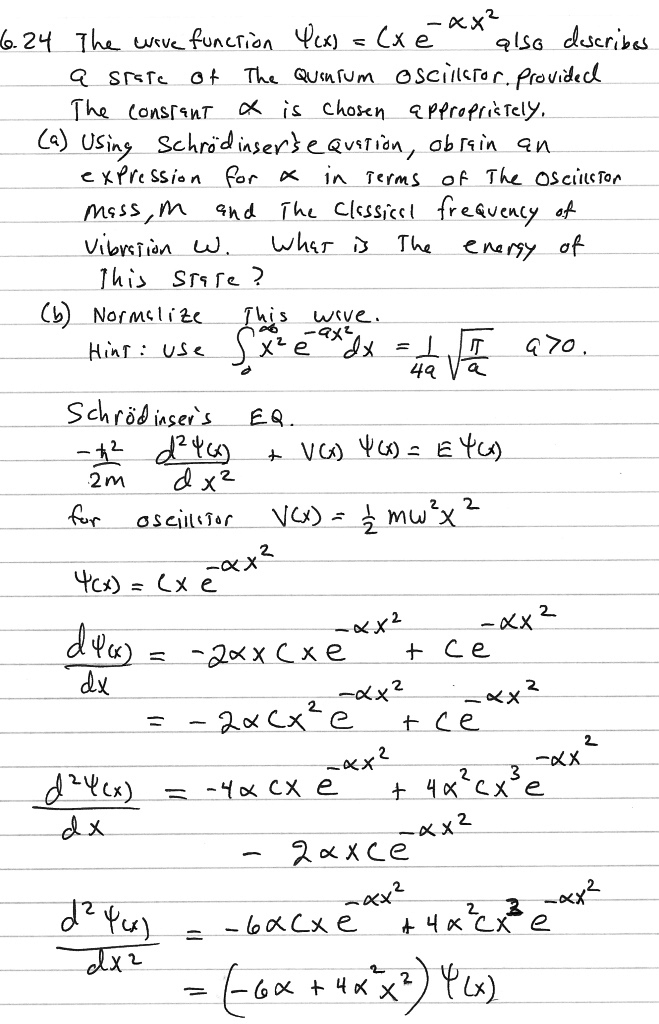 6.24 The wave function Ψ(x) = Cx e^{-αx²} also describes
a state of the quantum oscillator, provided
the constant α is chosen appropriately.
(a) Using Schrödinger's equation, obtain an
expression for α in terms of the oscillator
mass, m and the classical frequency of
vibration ω. What is the energy of
this state?
(b) Normalize this wave.
Hint: use ∫₀^∞ x² e^{-ax²} dx = 1/4a √(π/a) a>0.
Schrödinger's EQ.
-ħ²/2m d²Ψ(x)/dx² + V(x) Ψ(x) = E Ψ(x)
for oscillator V(x) = ½ mω²x²
Ψ(x) = Cx e^{-αx²}
dΨ(x)/dx = -2αx Cx e^{-αx²} + C e^{-αx²}
= -2αCx² e^{-αx²} + C e^{-αx²}
d²Ψ(x)/dx = -4αCx e^{-αx²} + 4α²Cx³ e^{-αx²}
- 2αxC e^{-αx²}
d²Ψ(x)/dx² = -6αCx e^{-αx²} + 4α²Cx³ e^{-αx²}
= (-6α + 4α²x²) Ψ(x)